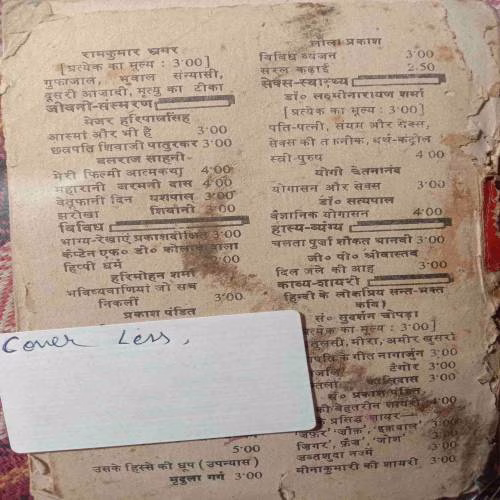 रामकुमार भ्रमर
[प्रत्येक का मूल्य : 3·00]
गुफाजाल, भूवाल संन्यासी,
दूसरी आजादी, मृत्यु का टीका
जीवनी-संस्मरण
मेजर हरिपालसिंह
आरमां और भी हैं 3·00
छत्रपति शिवाजी पातुरकर 3·00
बलराज साहनी
मेरी फिल्मी आत्मकथा 4·00
महारानी जरमनी दास 4·00
वे तूफानी दिन यशपाल 3·00
झरोखा शिवानी 3·00
विविध
भाग्य-रेखाएं प्रकाश दीक्षित 3·00
कैप्टेन एफ० डी० कोलाबावाला
हिप्पी धर्म 3·00
हरिमोहन शर्मा
भविष्यवाणियां जो सच
निकलीं 3·00
प्रकाश पंडित
Cover Less,
5·00
उसके हिस्से की धूप (उपन्यास)
मृदुला गर्ग 3·00
लीला प्रकाश
विविध व्यंजन 3·00
सरल कढ़ाई 2·50
सेक्स-स्वास्थ्य
डॉ० लक्ष्मीनारायण शर्मा
[प्रत्येक का मूल्य : 3·00]
पति-पत्नी, संयम और सेक्स,
सेक्स की तकनीक, बर्थ-कंट्रोल
स्त्री-पुरुष 4·00
योगी चेतनानंद
योगासन और सेक्स 3·00
डॉ० सत्यपाल
वैज्ञानिक योगासन 4·00
हास्य-व्यंग्य
चलता पुर्जा शौकत थानवी 3·00
जी० पी० श्रीवास्तव
दिल जले की आह 3·00
काव्य-शायरी
हिन्दी के लोकप्रिय सन्त-भक्त
कवि)
सं० सुदर्शन चोपड़ा
प्रत्येक का मूल्य : 3·00]
तुलसी, मीरा, अमीर खुसरो
के गीत नागार्जुन 3·00
टैगोर 3·00
कालिदास 3·00
प्रकाश पंडित
की बेहतरीन शायरी 4·00
के प्रसिद्ध शायर—
'ज़फ़र' 'ज़ौक़', 'इक़बाल', 3·00
'जिगर', 'फ़ैज़', 'जोश' 3·00
ज़ब्तशुदा नज़्में 3·00
मीनाकुमारी की शायरी 3·00